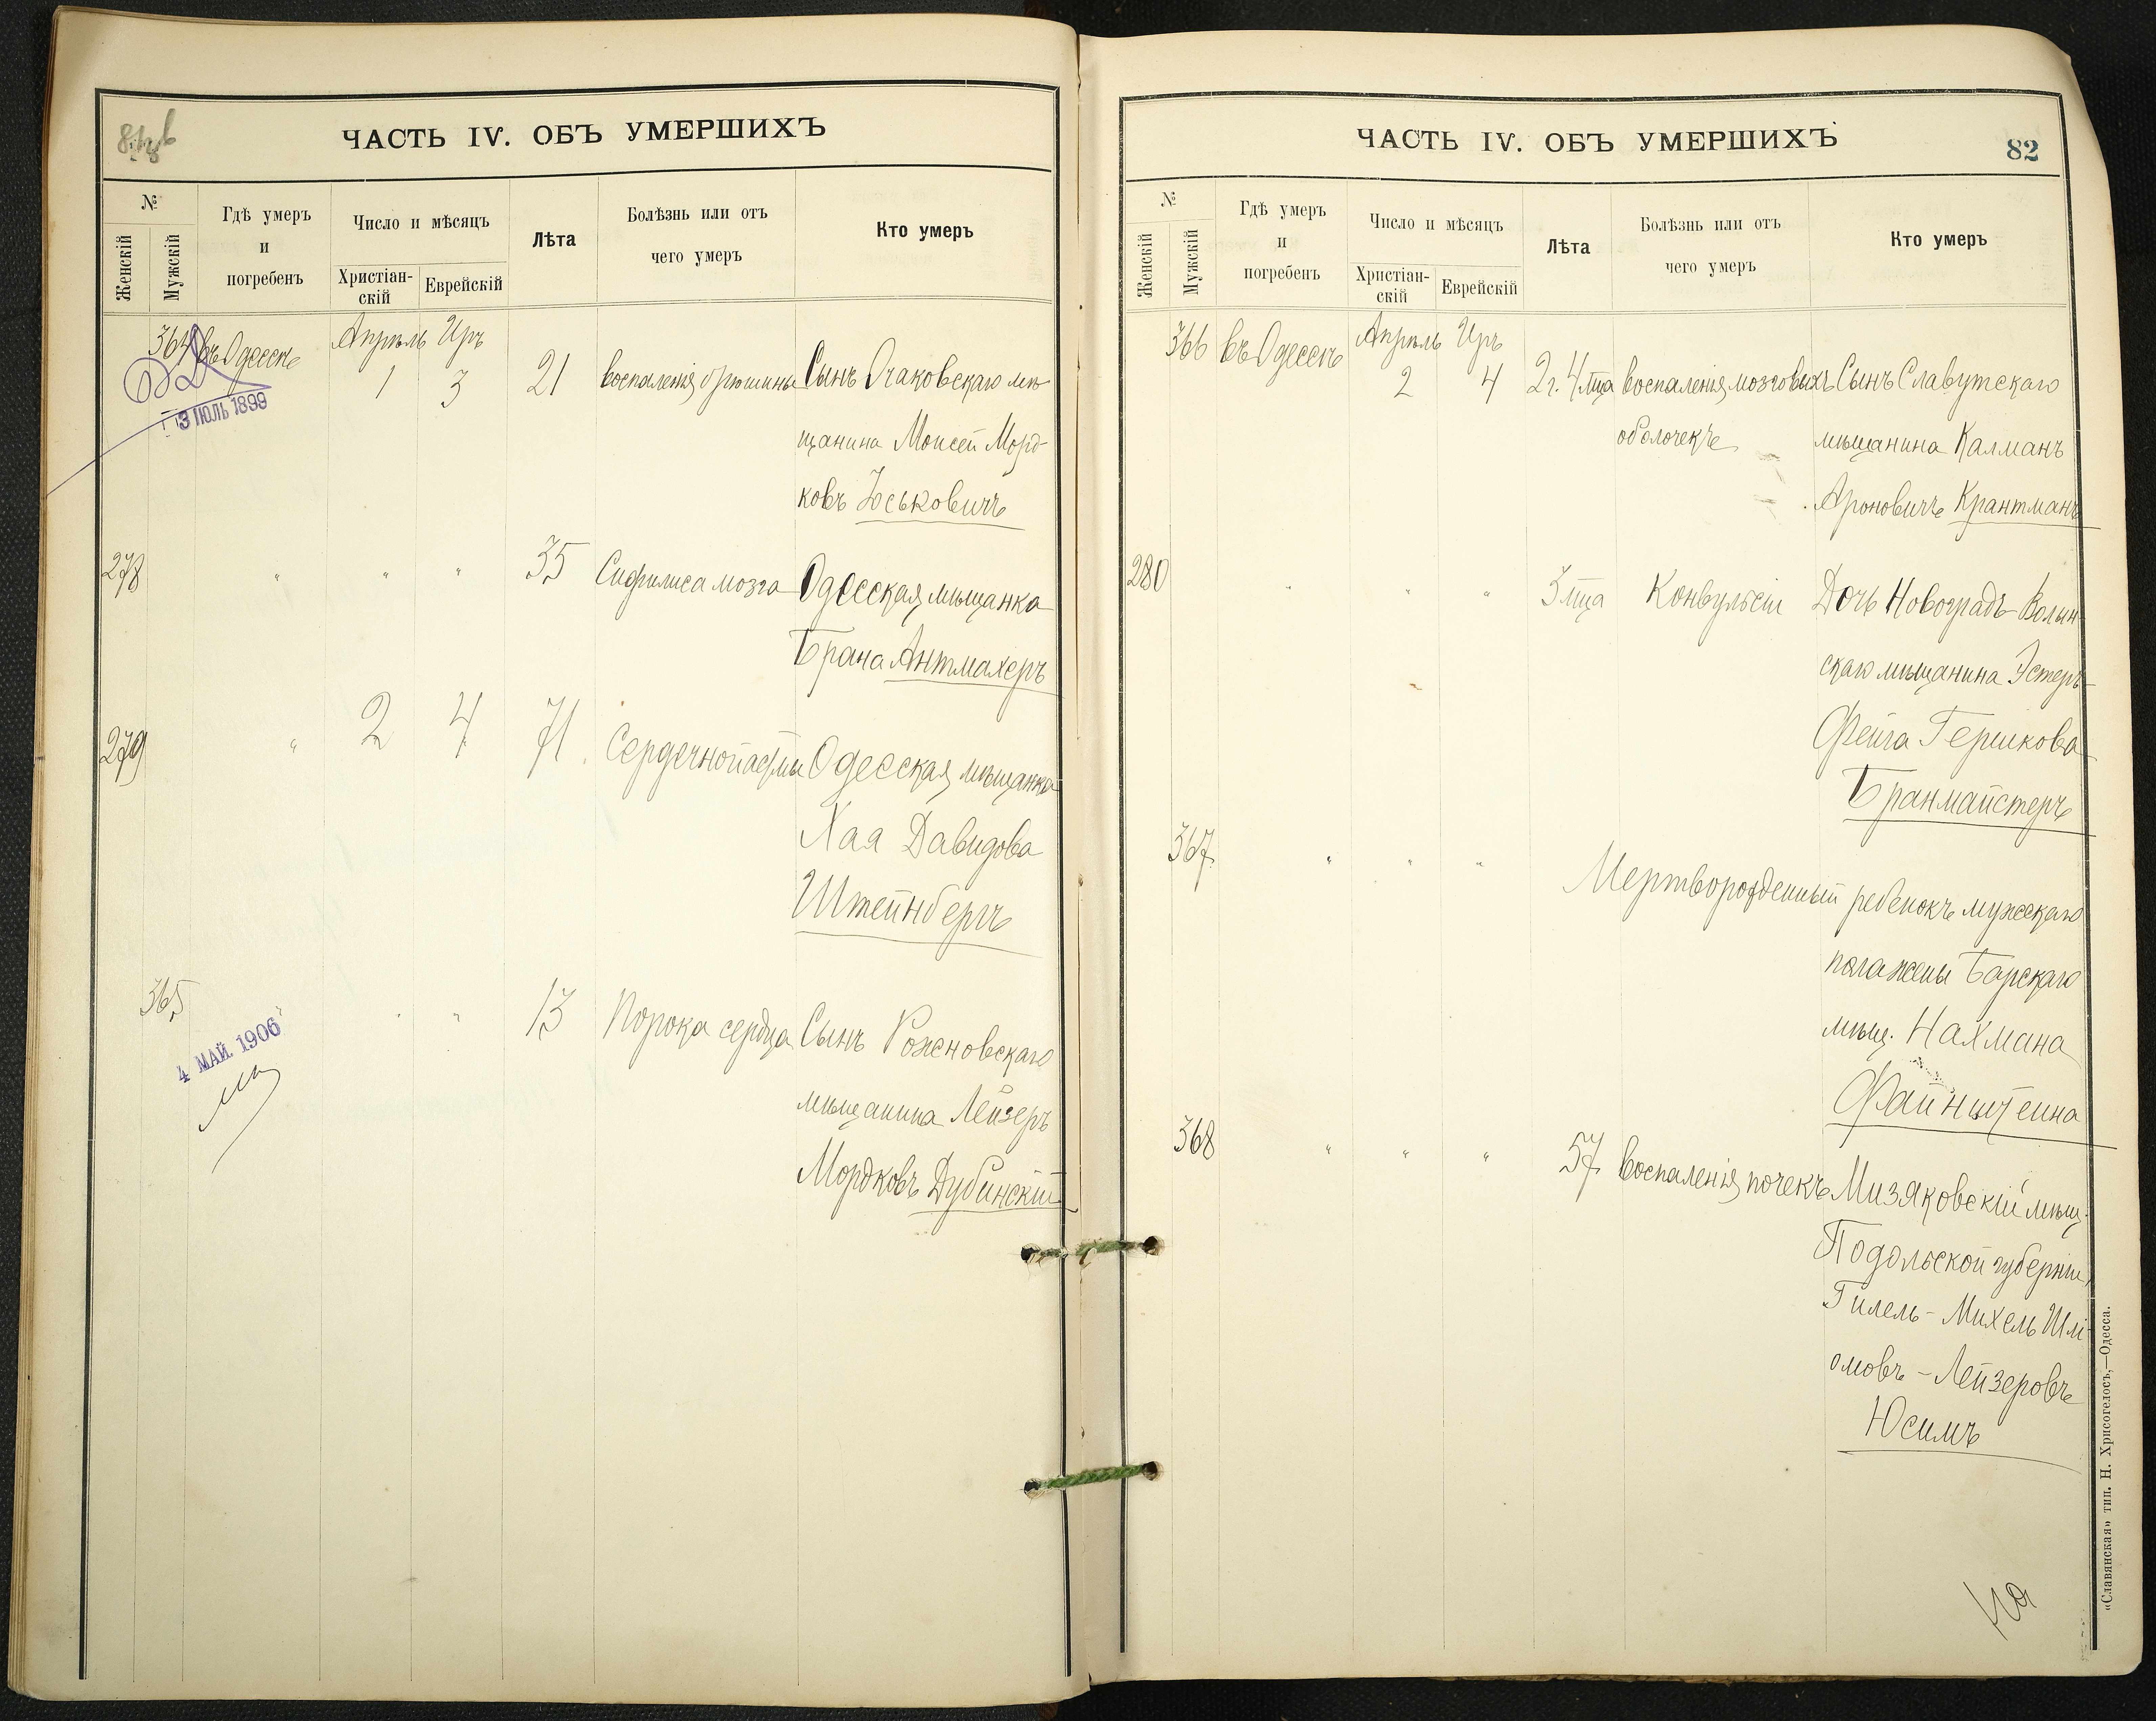 ЧАСТЬ IV. ОБЪ УМЕРШИХЪ
№
Женскій
Мужскій
Гдѣ умеръ
и
погребенъ
Число и мѣсяцъ
Христіан-
скій
Еврейскій
Лѣта
Болѣзнь или отъ
чего умеръ
Кто умеръ
364 въ Одессѣ Апрѣль Иръ
1 3 21 воспаленія брюшины Сынъ Очаковскаго мѣ-
щанина Моисей Морд-
ковъ Юськовичъ
3 ІЮЛЬ 1899
278 " " " 35 Сифилиса мозга Одесская мѣщанка
Брана Антмахеръ
279 " 2 4 71 Сердечной астмы Одесская мѣщанка
Хая Давидова
Штейнбергъ
365 " " " 13 Порока сердца Сынъ Рожновскаго
мѣщанина Лейзеръ
Мордковъ Дубинскій
4 МАЙ 1906
ЧАСТЬ IV. ОБЪ УМЕРШИХЪ
82
№
Женскій
Мужскій
Гдѣ умеръ
и
погребенъ
Число и мѣсяцъ
Христіан-
скій
Еврейскій
Лѣта
Болѣзнь или отъ
чего умеръ
Кто умеръ
366 въ Одессѣ Апрѣль Иръ
2 4 2 г. 4 мца воспаленія мозговыхъ Сынъ Славутскаго
оболочекъ мѣщанина Калманъ
Ароновичъ Крантманъ
280 " " " 3 мца Конвульсіи Дочь Новоградъ-Волын-
скаго мѣщанина Эстеръ-
Фейга Гершкова
Бранмайстеръ
367 " " " Мертворожденный ребенокъ мужскаго
пола жены Барскаго
мѣщ. Нахмана
Файнштейна
368 " " " 57 воспаленія почекъ Мизяковскій мѣщ.
Подольской губерніи
Гилель-Михель Шлі-
омовъ-Лейзеровъ
Юсимъ
«Славянская» тип. Н. Хрисогелосъ,—Одесса.